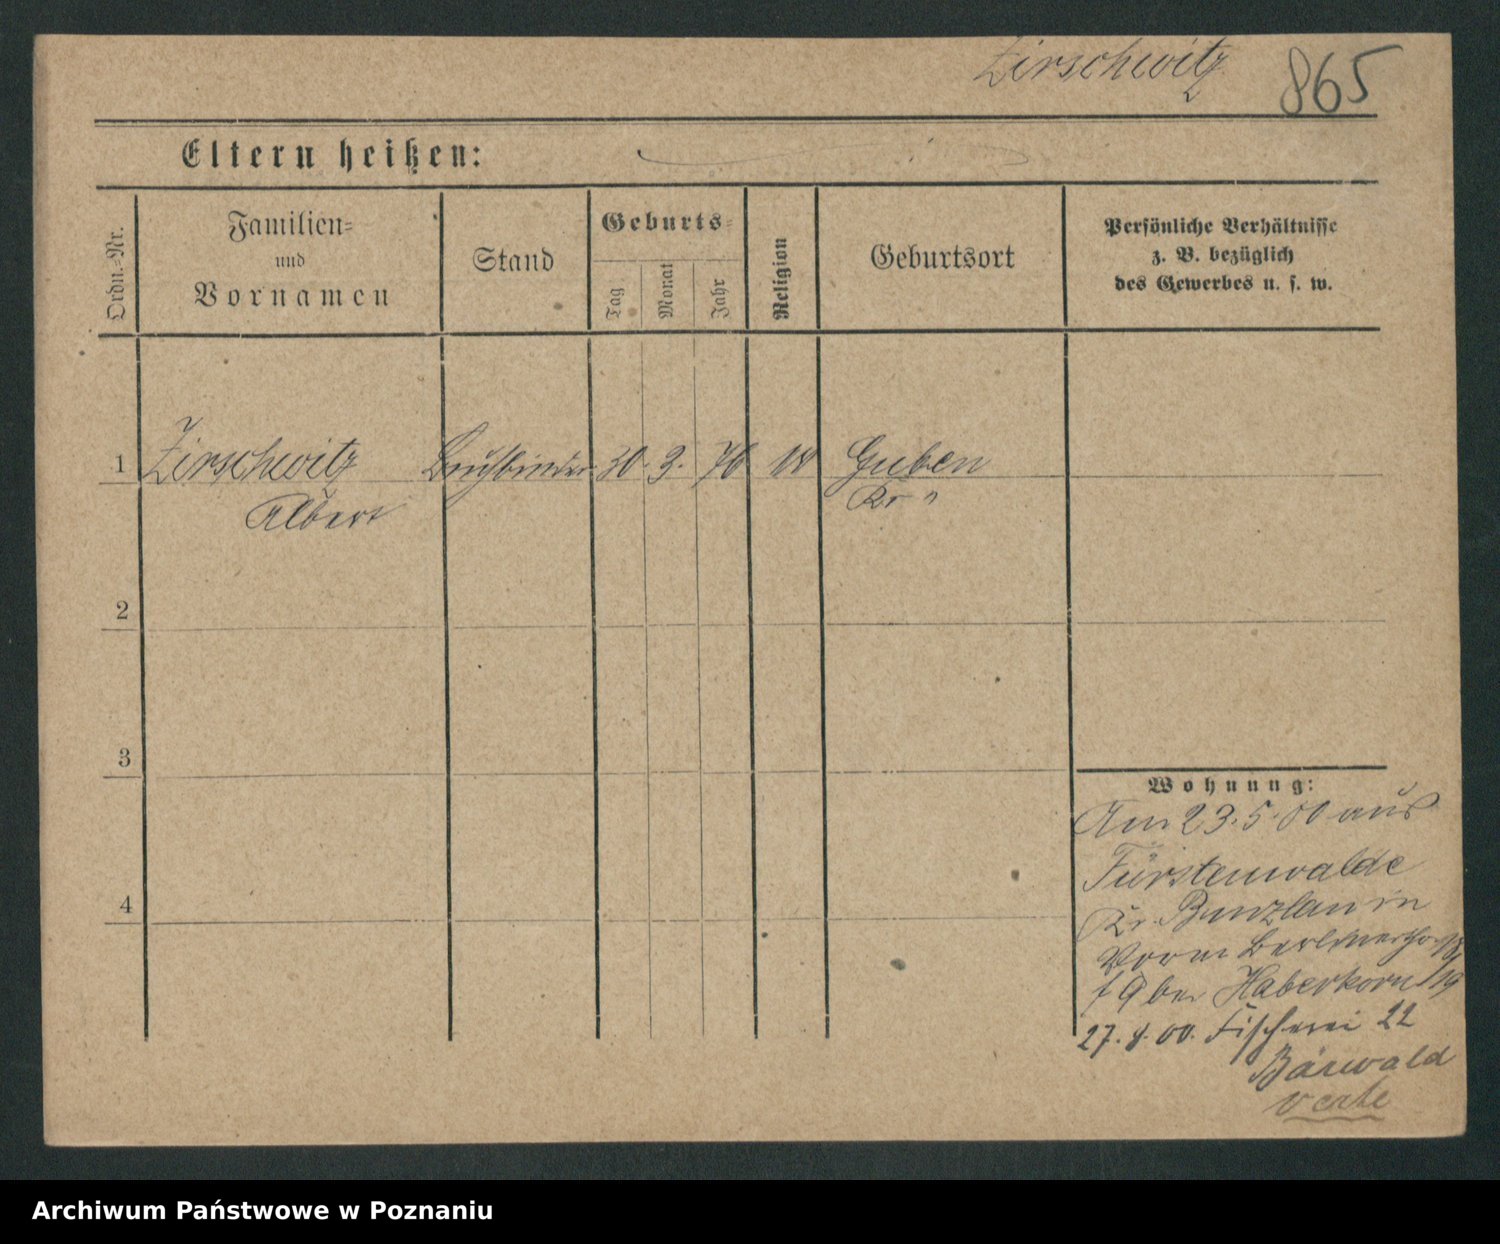 Zirschwitz 865
Eltern heißen:
Ordn.-Nr.
Familien-
und
Vornamen
Stand
Geburts-
Tag
Monat
Jahr
Religion
Geburtsort
Persönliche Verhältnisse
z. B. bezüglich
des Gewerbes u. s. w.
1 Zirschwitz Buchbinder 30. 3. 76 Guben
Albert Kr "
2
3
4
Wohnung:
Am 23.5.00 aus
Fürstenwalde
Kr. Bunzlau in
bei Haberkorn
27. 00. Fischerei 22
Bärwald
verte
Archiwum Państwowe w Poznaniu